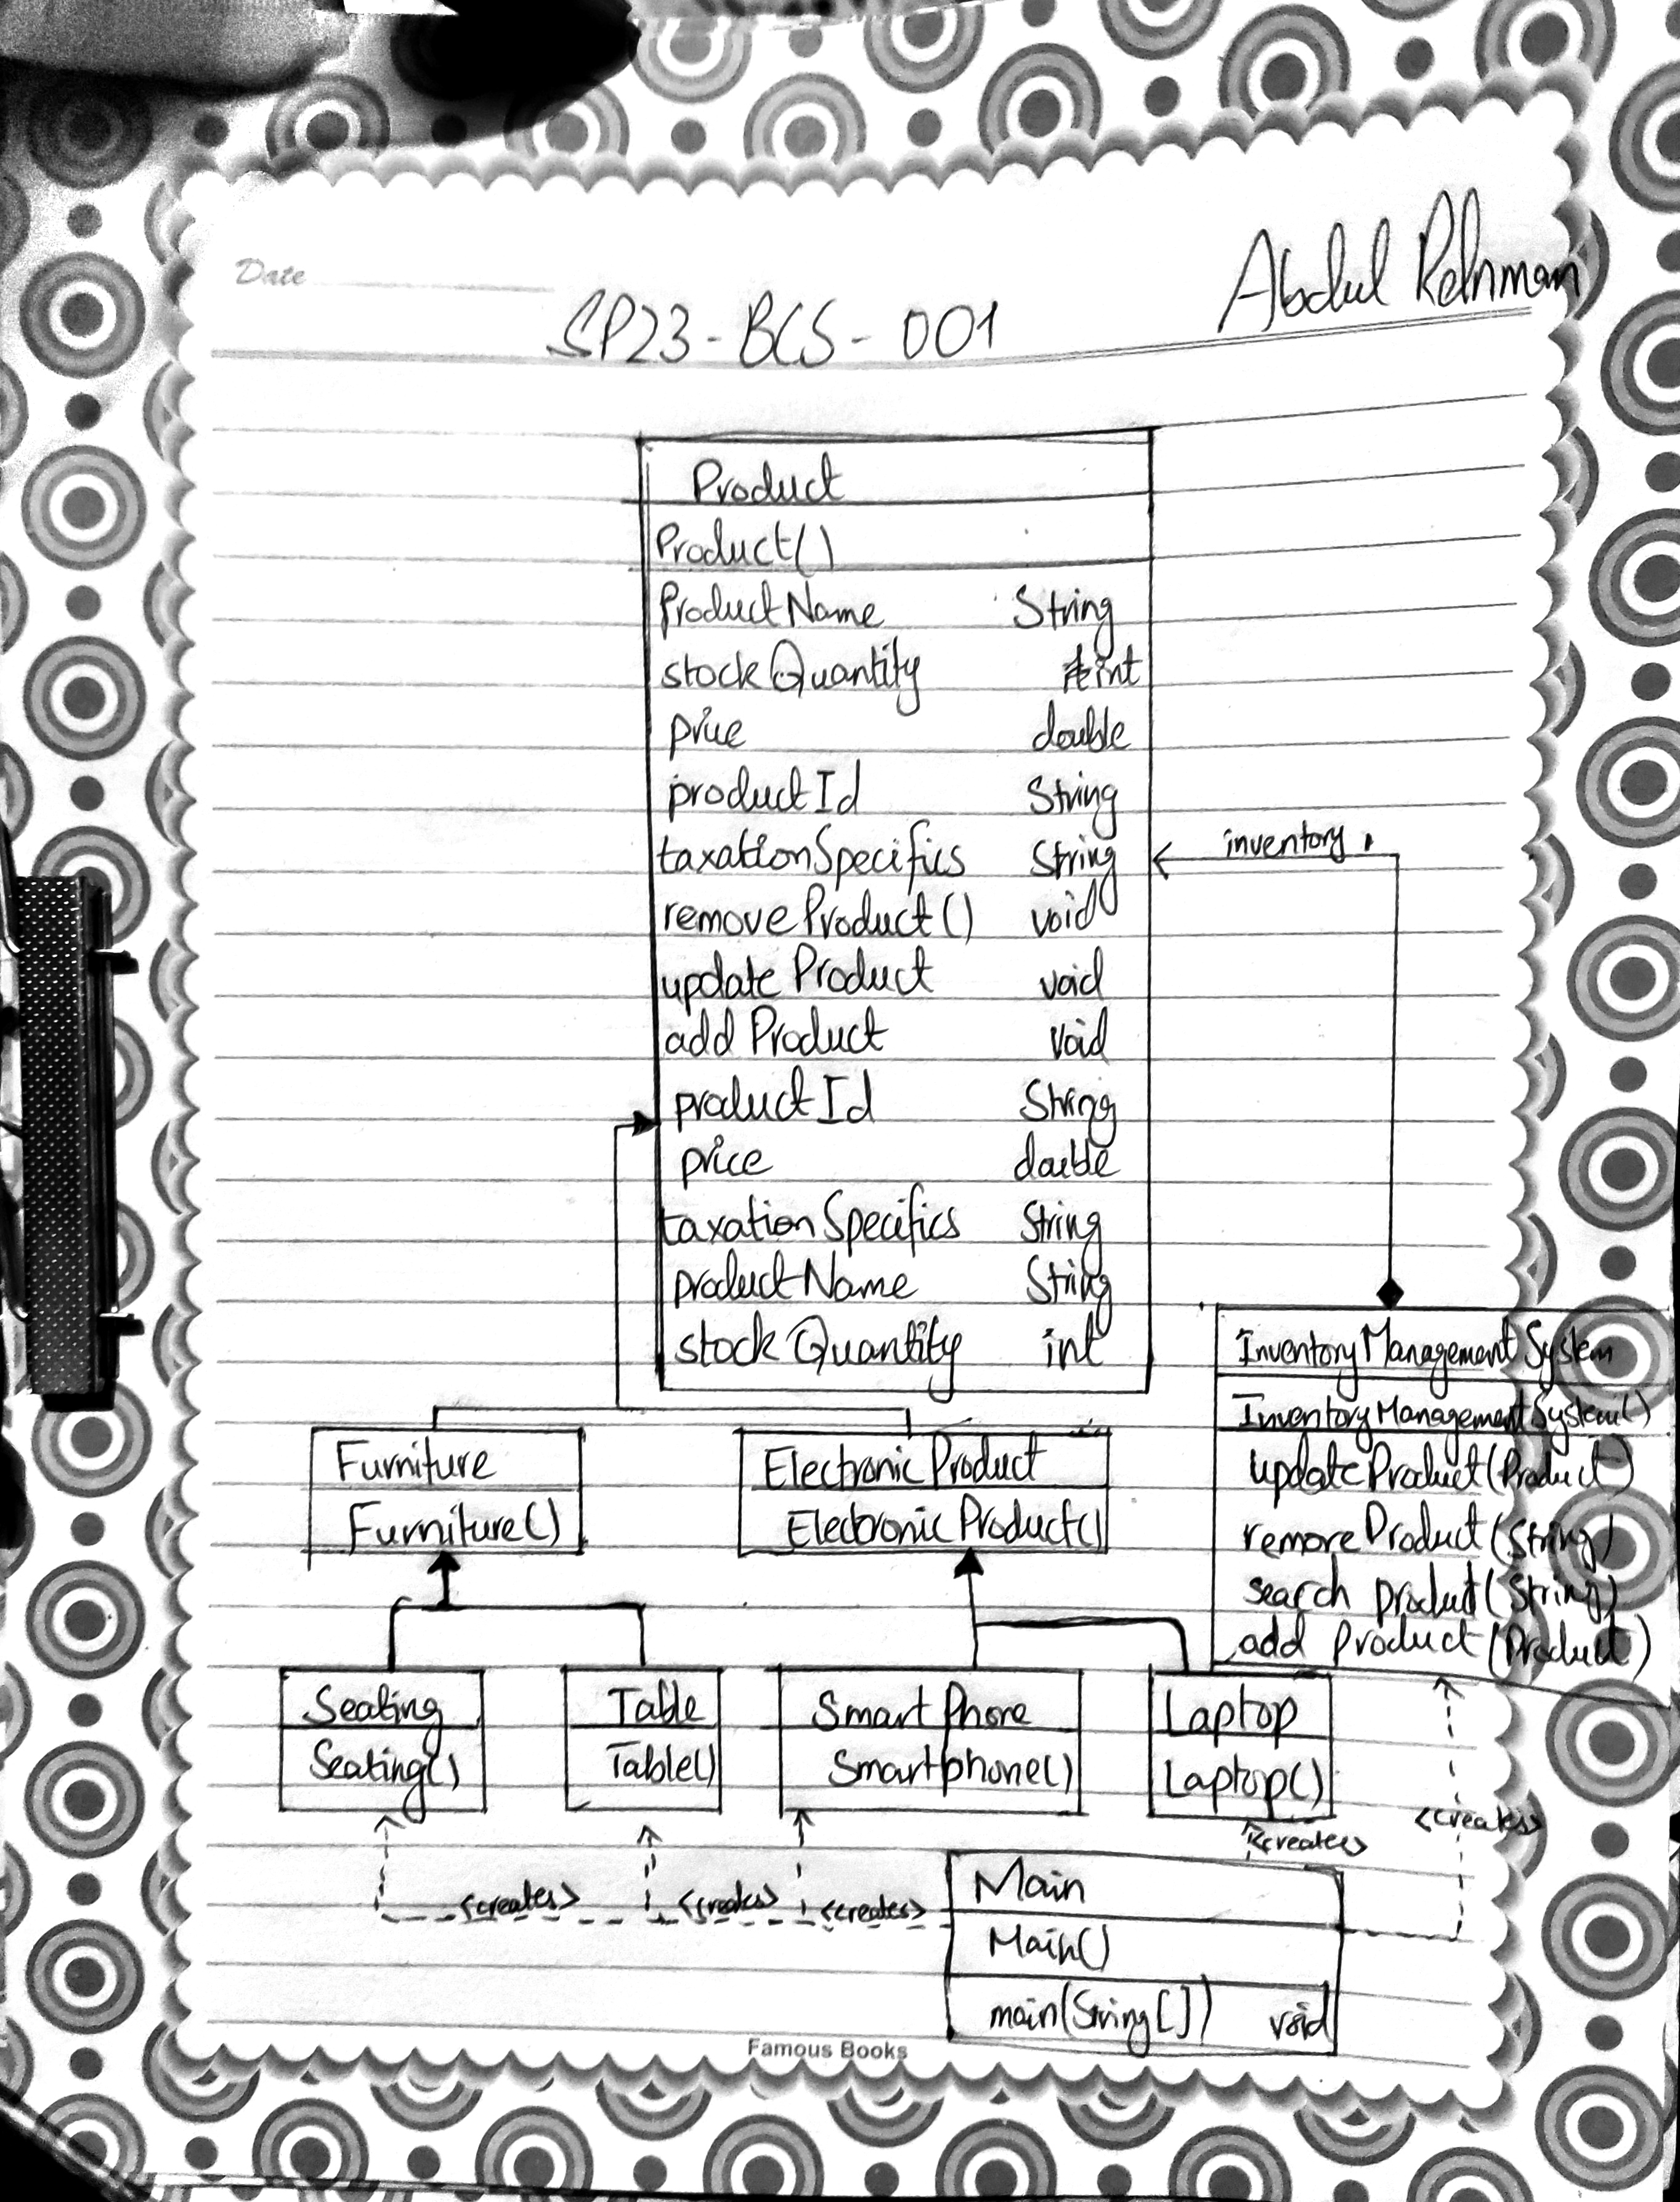 Date
Abdul Rehman
SP23-BCS-001
Product
Product()
ProductName String
stockQuantity int
price double
productId String
taxationSpecifics String
inventory
removeProduct() void
updateProduct void
add Product void
productId String
price double
taxationSpecifics String
productName String
stockQuantity int
InventoryManagementSystem
InventoryManagementSystem()
updateProduct(Product)
removeProduct(String)
search product(String)
add product(Product)
Furniture
Furniture()
Electronic Product
Electronic Product()
Seating
Seating()
Table
Table()
Smart Phone
Smartphone()
Laptop
Laptop()
<creates>
<creates>
<creates>
<creates>
<creates>
Main
Main()
main(String[]) void
Famous Books